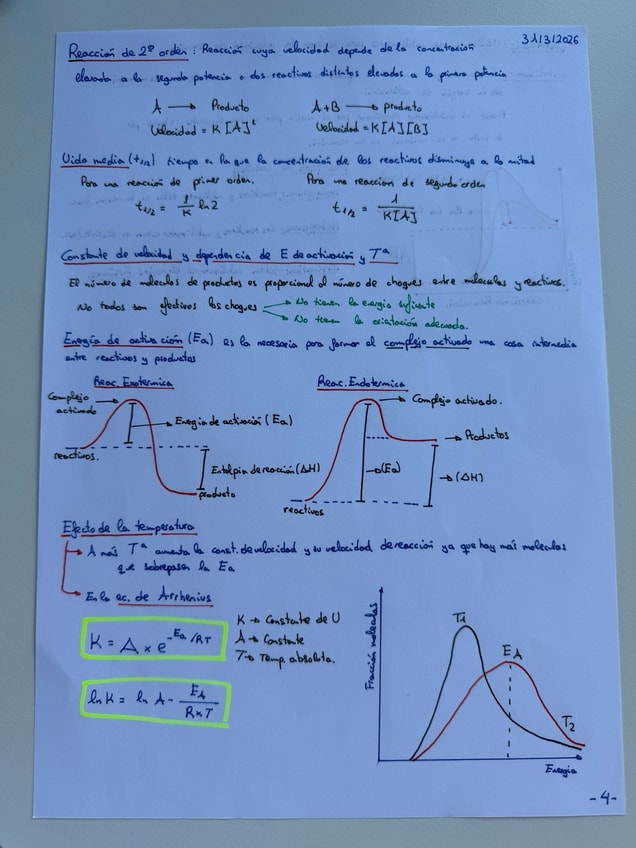 31/3/2026
Reacción de 2º orden: Reacción cuya velocidad depende de la concentración
elevada a la segunda potencia o dos reactivos distintos elevados a la primera potencia
A → Producto
Velocidad = K[A]²
A+B → producto
Velocidad = K[A][B]
Vida media (t1/2) tiempo en la que la concentración de los reactivos disminuye a la mitad
Para una reacción de primer orden.
t1/2 = 1/K ln 2
Para una reaccion de segundo orden
t1/2 = 1/K[A]
Constante de velocidad y dependencia de E de activación y Tª
El número de moleculas de productos es proporcional al número de choques entre moleculas y reactivos.
No todos son efectivos los choques → No tienen la energia suficiente
→ No tienen la orientación adecuada.
Energía de activación (Ea) es la necesaria para formar el complejo activado una cosa intermedia
entre reactivos y productos
Reac. Exotermica
Complejo activado
Energia de activación (Ea)
reactivos.
Entalpia de reacción (ΔH)
producto
Reac. Endotermica
Complejo activado.
Productos
(Ea)
(ΔH)
reactivos
Efecto de la temperatura
→ A más Tª aumenta la const. de velocidad y su velocidad de reacción ya que hay más moleculas
que sobrepasen la Ea
→ En la ec. de Arrhenius
K = A × e^-Ea/RT
K → Constante de U
A → Constante
T → Temp. absoluta.
ln K = ln A - EA/R×T
Fracción moleculas
T1
EA
T2
Energia
- 4 -